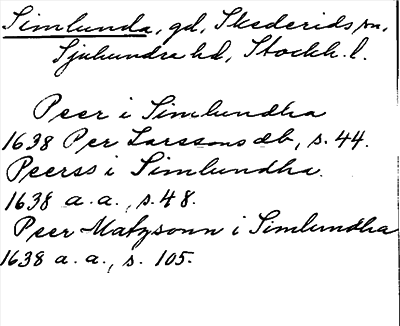 Simlunda, gd, Skederids sn,
Sjuhundra hd, Stockh. l.
Peer i Simlundha
1638 Per Larssons db, s. 44.
Peerss i Simlundha.
1638 a. a., s. 48.
Peer Matzsonn i Simlundha
1638 a. a., s. 105.